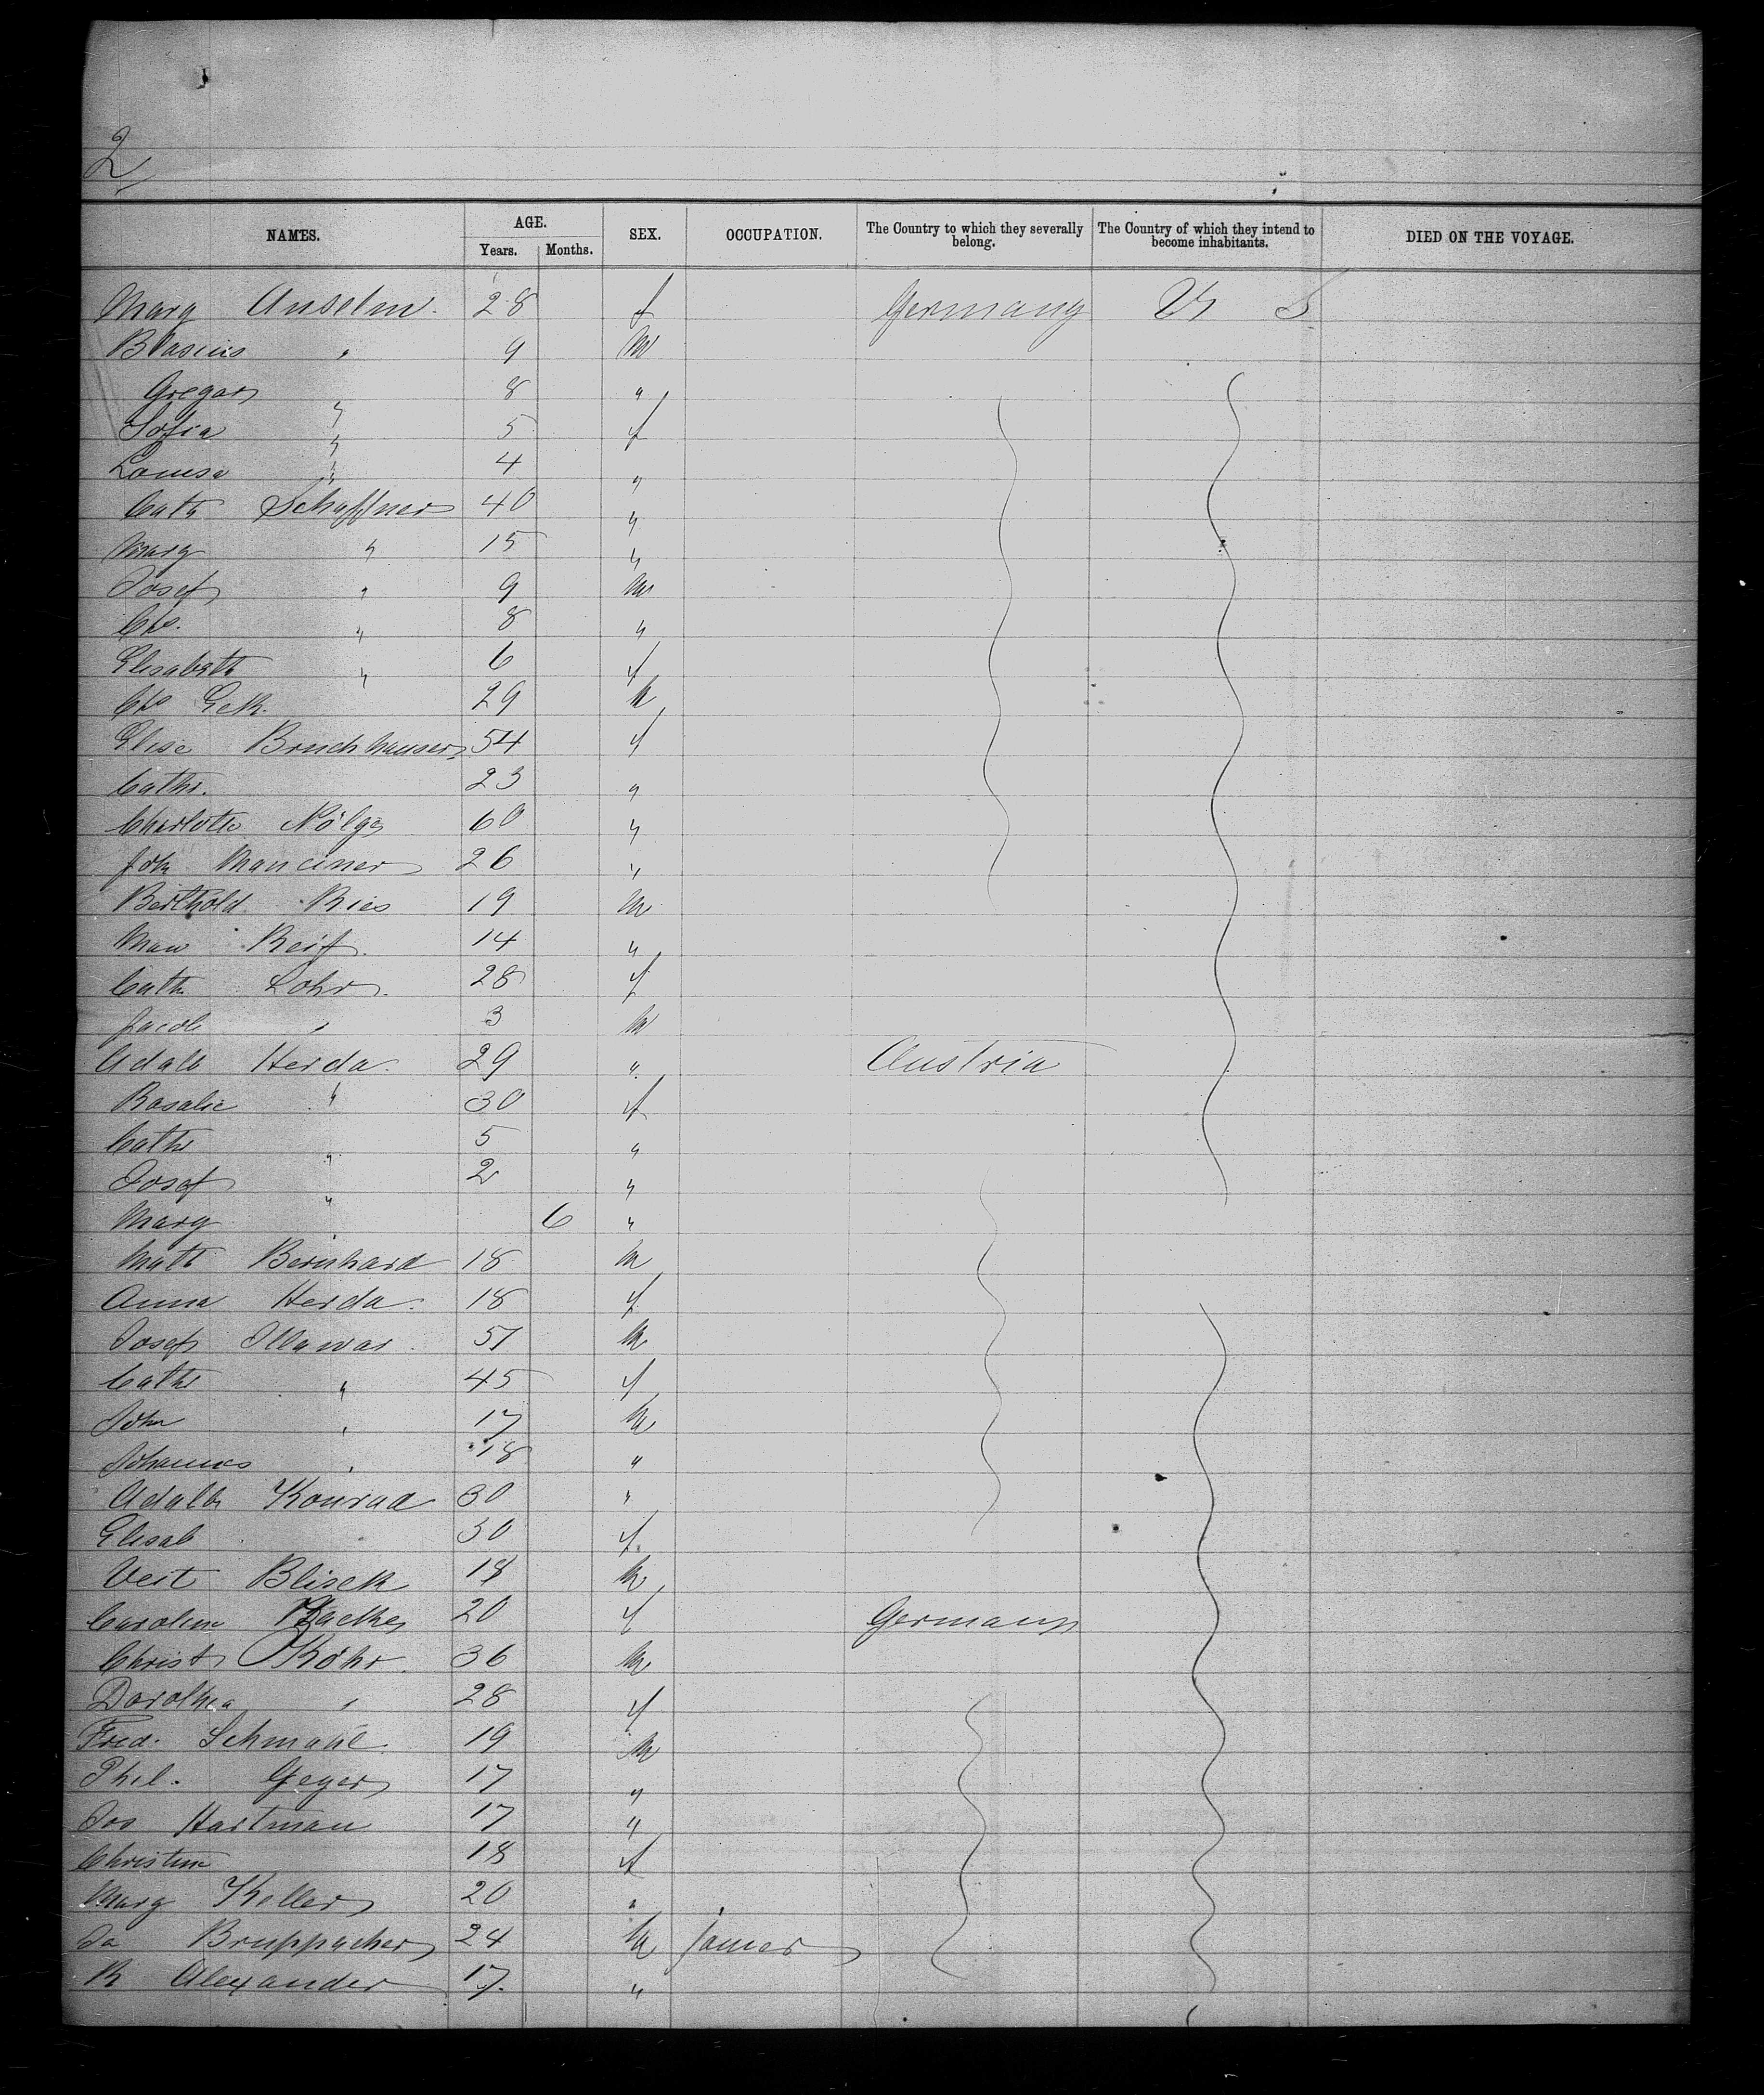 2
NAMES. AGE. Years. Months. SEX. OCCUPATION. The Country to which they severally belong. The Country of which they intend to become inhabitants. DIED ON THE VOYAGE.
Marg Anselm. 28 f Germany U S
Blasius " 9 m
Gregor " 8 "
Sofia " 5 f
Louisa " 4 "
Cath Schaffner 40 "
Marg " 15 "
Josef " 9 m
Chs. " 8 "
Elisabeth " 6 f
Chs Eck. 29 m
Elise Bruchhauser 54 f
Cathr. 23 "
Charlotte Nölge 60 "
Joh 26 "
Berthold Ries 19 m
Max Reif. 14 "
Cath Lohr. 28 f
Jacob " 3 m
Adalb Herda. 29 " Austria
Rosalie " 30 f
Cathr " 5 "
Josef " 2 "
Marg " 6 "
Math Bernhard 18 m
Anna Herda. 18 f
Josef 51 m
Cathr " 45 f
John " 17 m
Johannes " 18 "
Adalb Konrad 30 "
Elisab 30 f.
Veit Blisek 18 m
Carolina 20 f Germany
Christ Röhr. 36 m
Dorothea " 28 f
Fred. Schmahl 19 m
Phil. Geyer 17 "
Jos Hartman 17 "
Christine 18 f
Marg Keller 20 "
Ja Bruppacher 24 m joiner
R Alexander 17. "